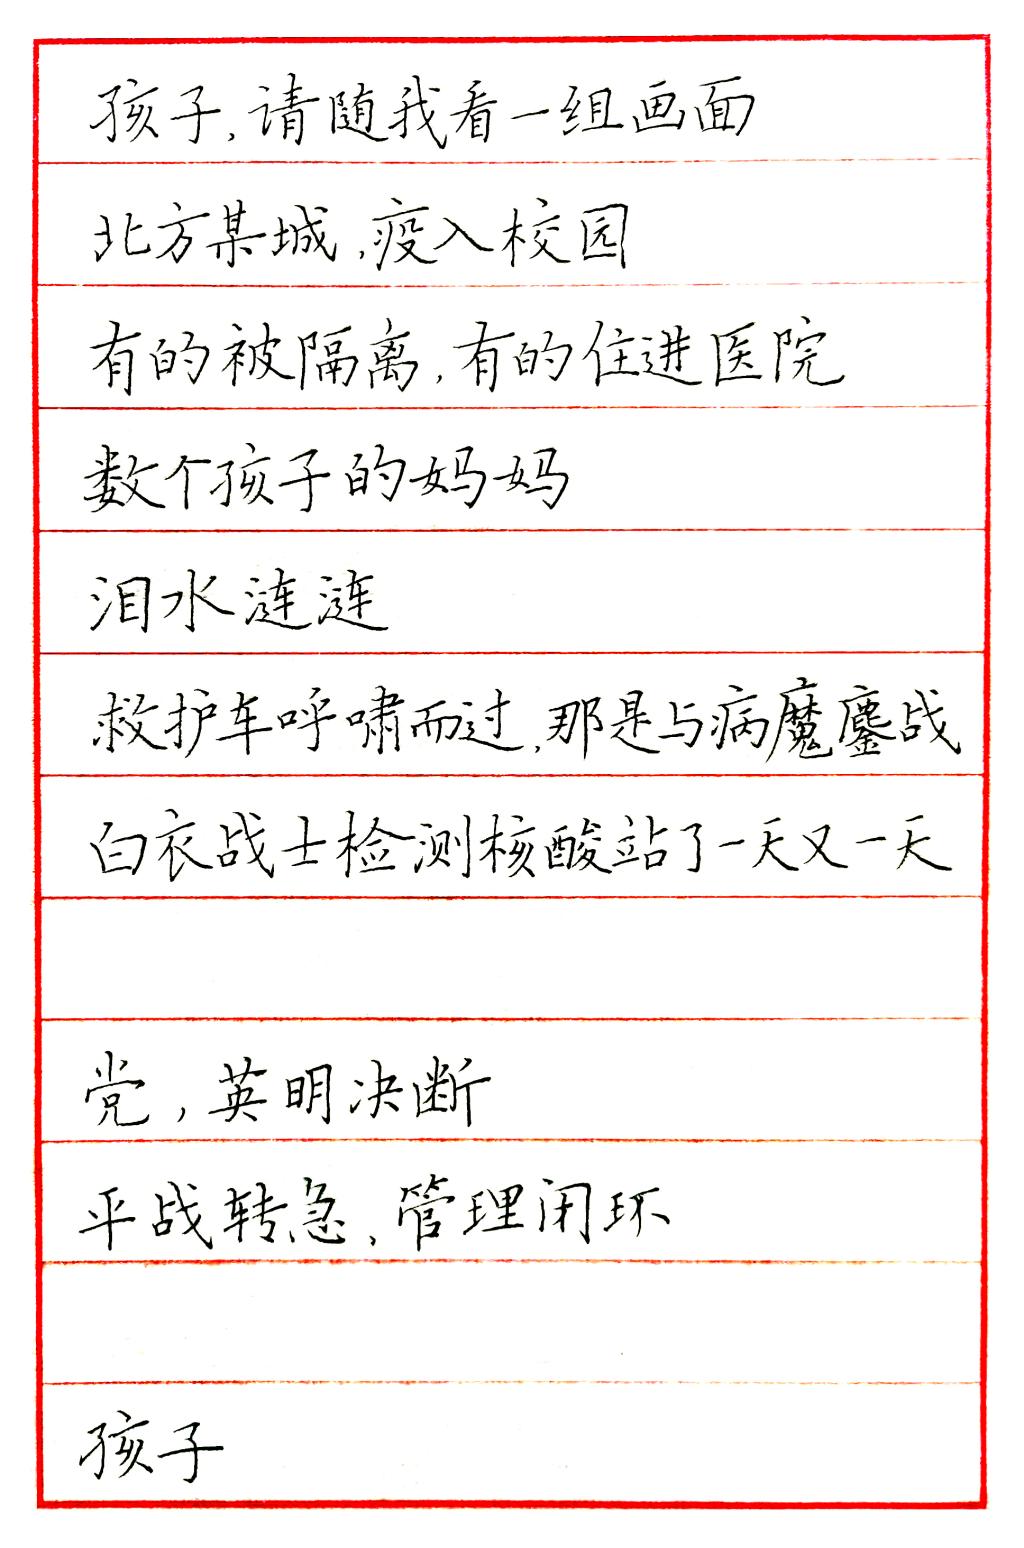 孩子,请随我看一组画面
北方某城,疫入校园
有的被隔离,有的住进医院
数个孩子的妈妈
泪水涟涟
救护车呼啸而过,那是与病魔鏖战
白衣战士检测核酸站了一天又一天
党,英明决断
平战转急,管理闭环
孩子